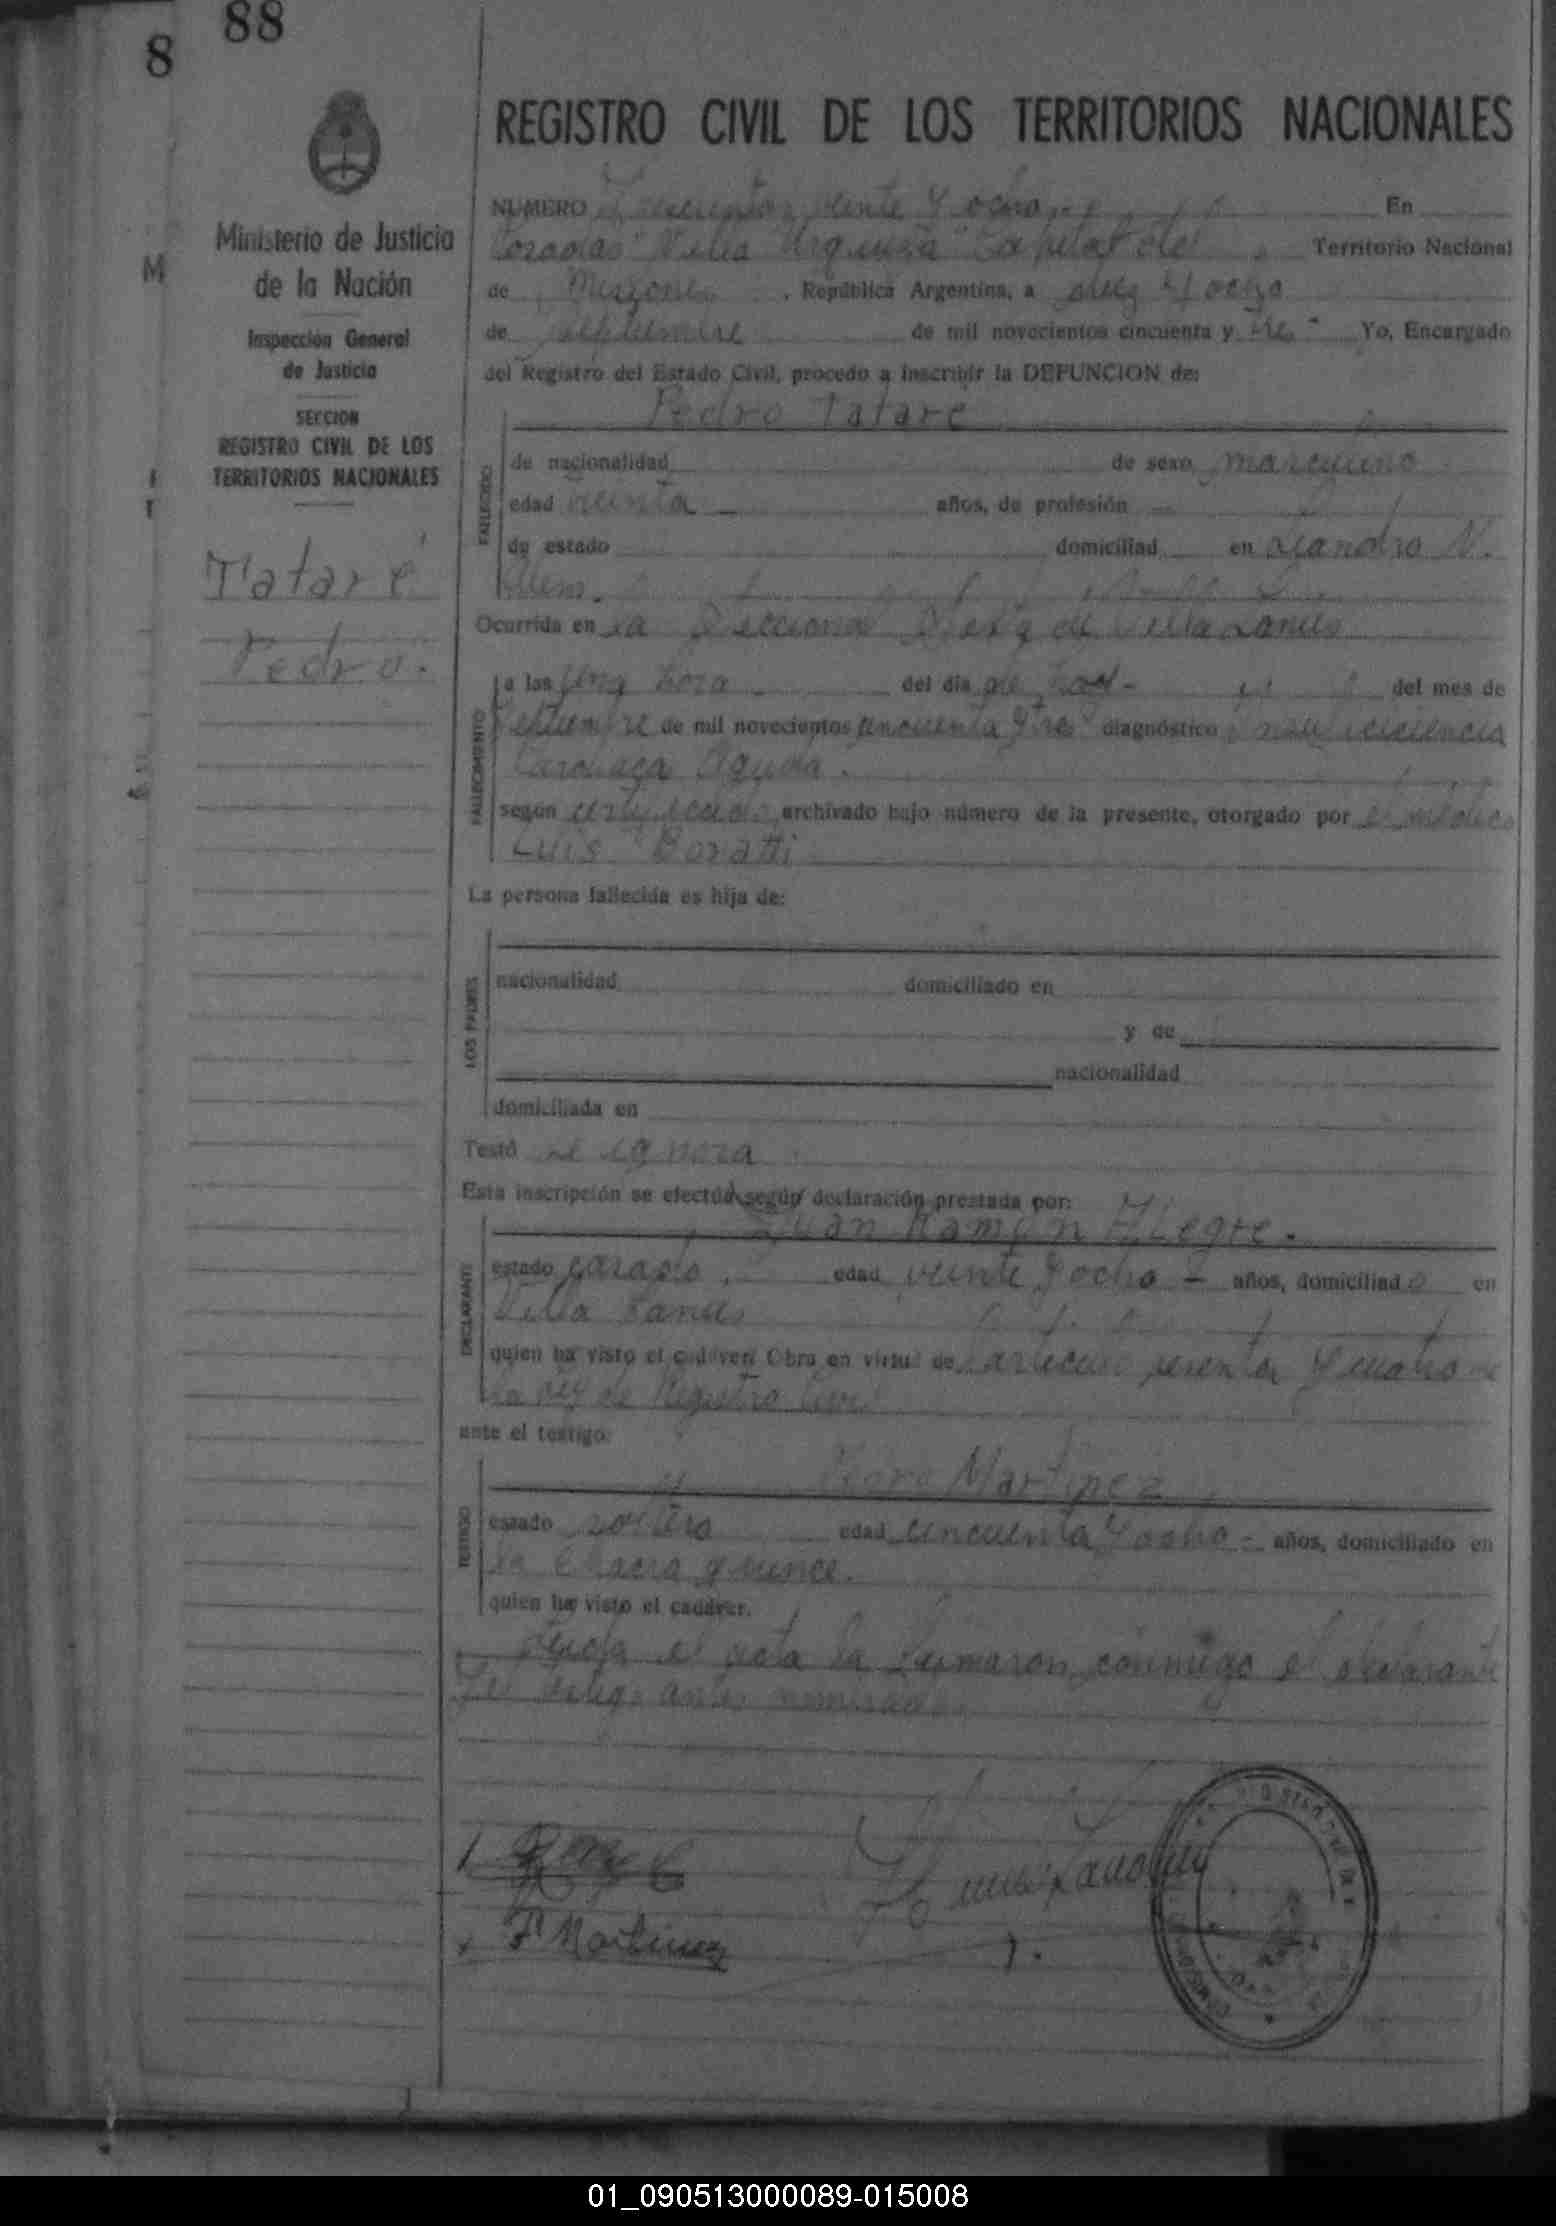 88
8
REGISTRO CIVIL DE LOS TERRITORIOS NACIONALES
Ministerio de Justicia
de la Nación
Inspección General
de Justicia
SECCION
REGISTRO CIVIL DE LOS
TERRITORIOS NACIONALES
Tataré
Pedro.
M
NUMERO Trescientos veinte y ocho En
Posadas "Villa Urquiza" Capital del Territorio Nacional
de Misiones, República Argentina, a diez y ocho
de septiembre de mil novecientos cincuenta y tres Yo, Encargado
del Registro del Estado Civil, procedo a inscribir la DEFUNCION de:
Pedro Tataré
FALLECIDO
de nacionalidad de sexo masculino
edad años, de profesión
de estado domiciliad en Leandro N.
Alem.
Ocurrida en la Seccional de Villa Lanus
FALLECIMIENTO
a las una hora del día de hoy del mes de
septiembre de mil novecientos cincuenta y tres diagnóstico insuficiencia
Cardiaca Aguda.
según certificado archivado bajo número de la presente, otorgado por el médico
Luis Boratti
La persona fallecida es hija de:
LOS PADRES
nacionalidad domiciliado en
y de
nacionalidad
domiciliada en
Testó se ignora
Esta inscripción se efectúa según declaración prestada por:
Juan Ramón Alegre.
DECLARANTE
estado casado, edad veinte y ocho - años, domiciliado en
Villa Lanus
quien ha visto el cadáver. Obra en virtud de artículo sesenta y cuatro de
la ley de Registro Civil
ante el testigo:
Pedro Martinez
TESTIGO
estado soltero edad cincuenta y ocho - años, domiciliado en
la Chacra quince.
quien ha visto el cadáver.
Leida el acta la firmaron conmigo el declarante
y el testigo antes nombrado.
P. Martinez
01_090513000089-015008